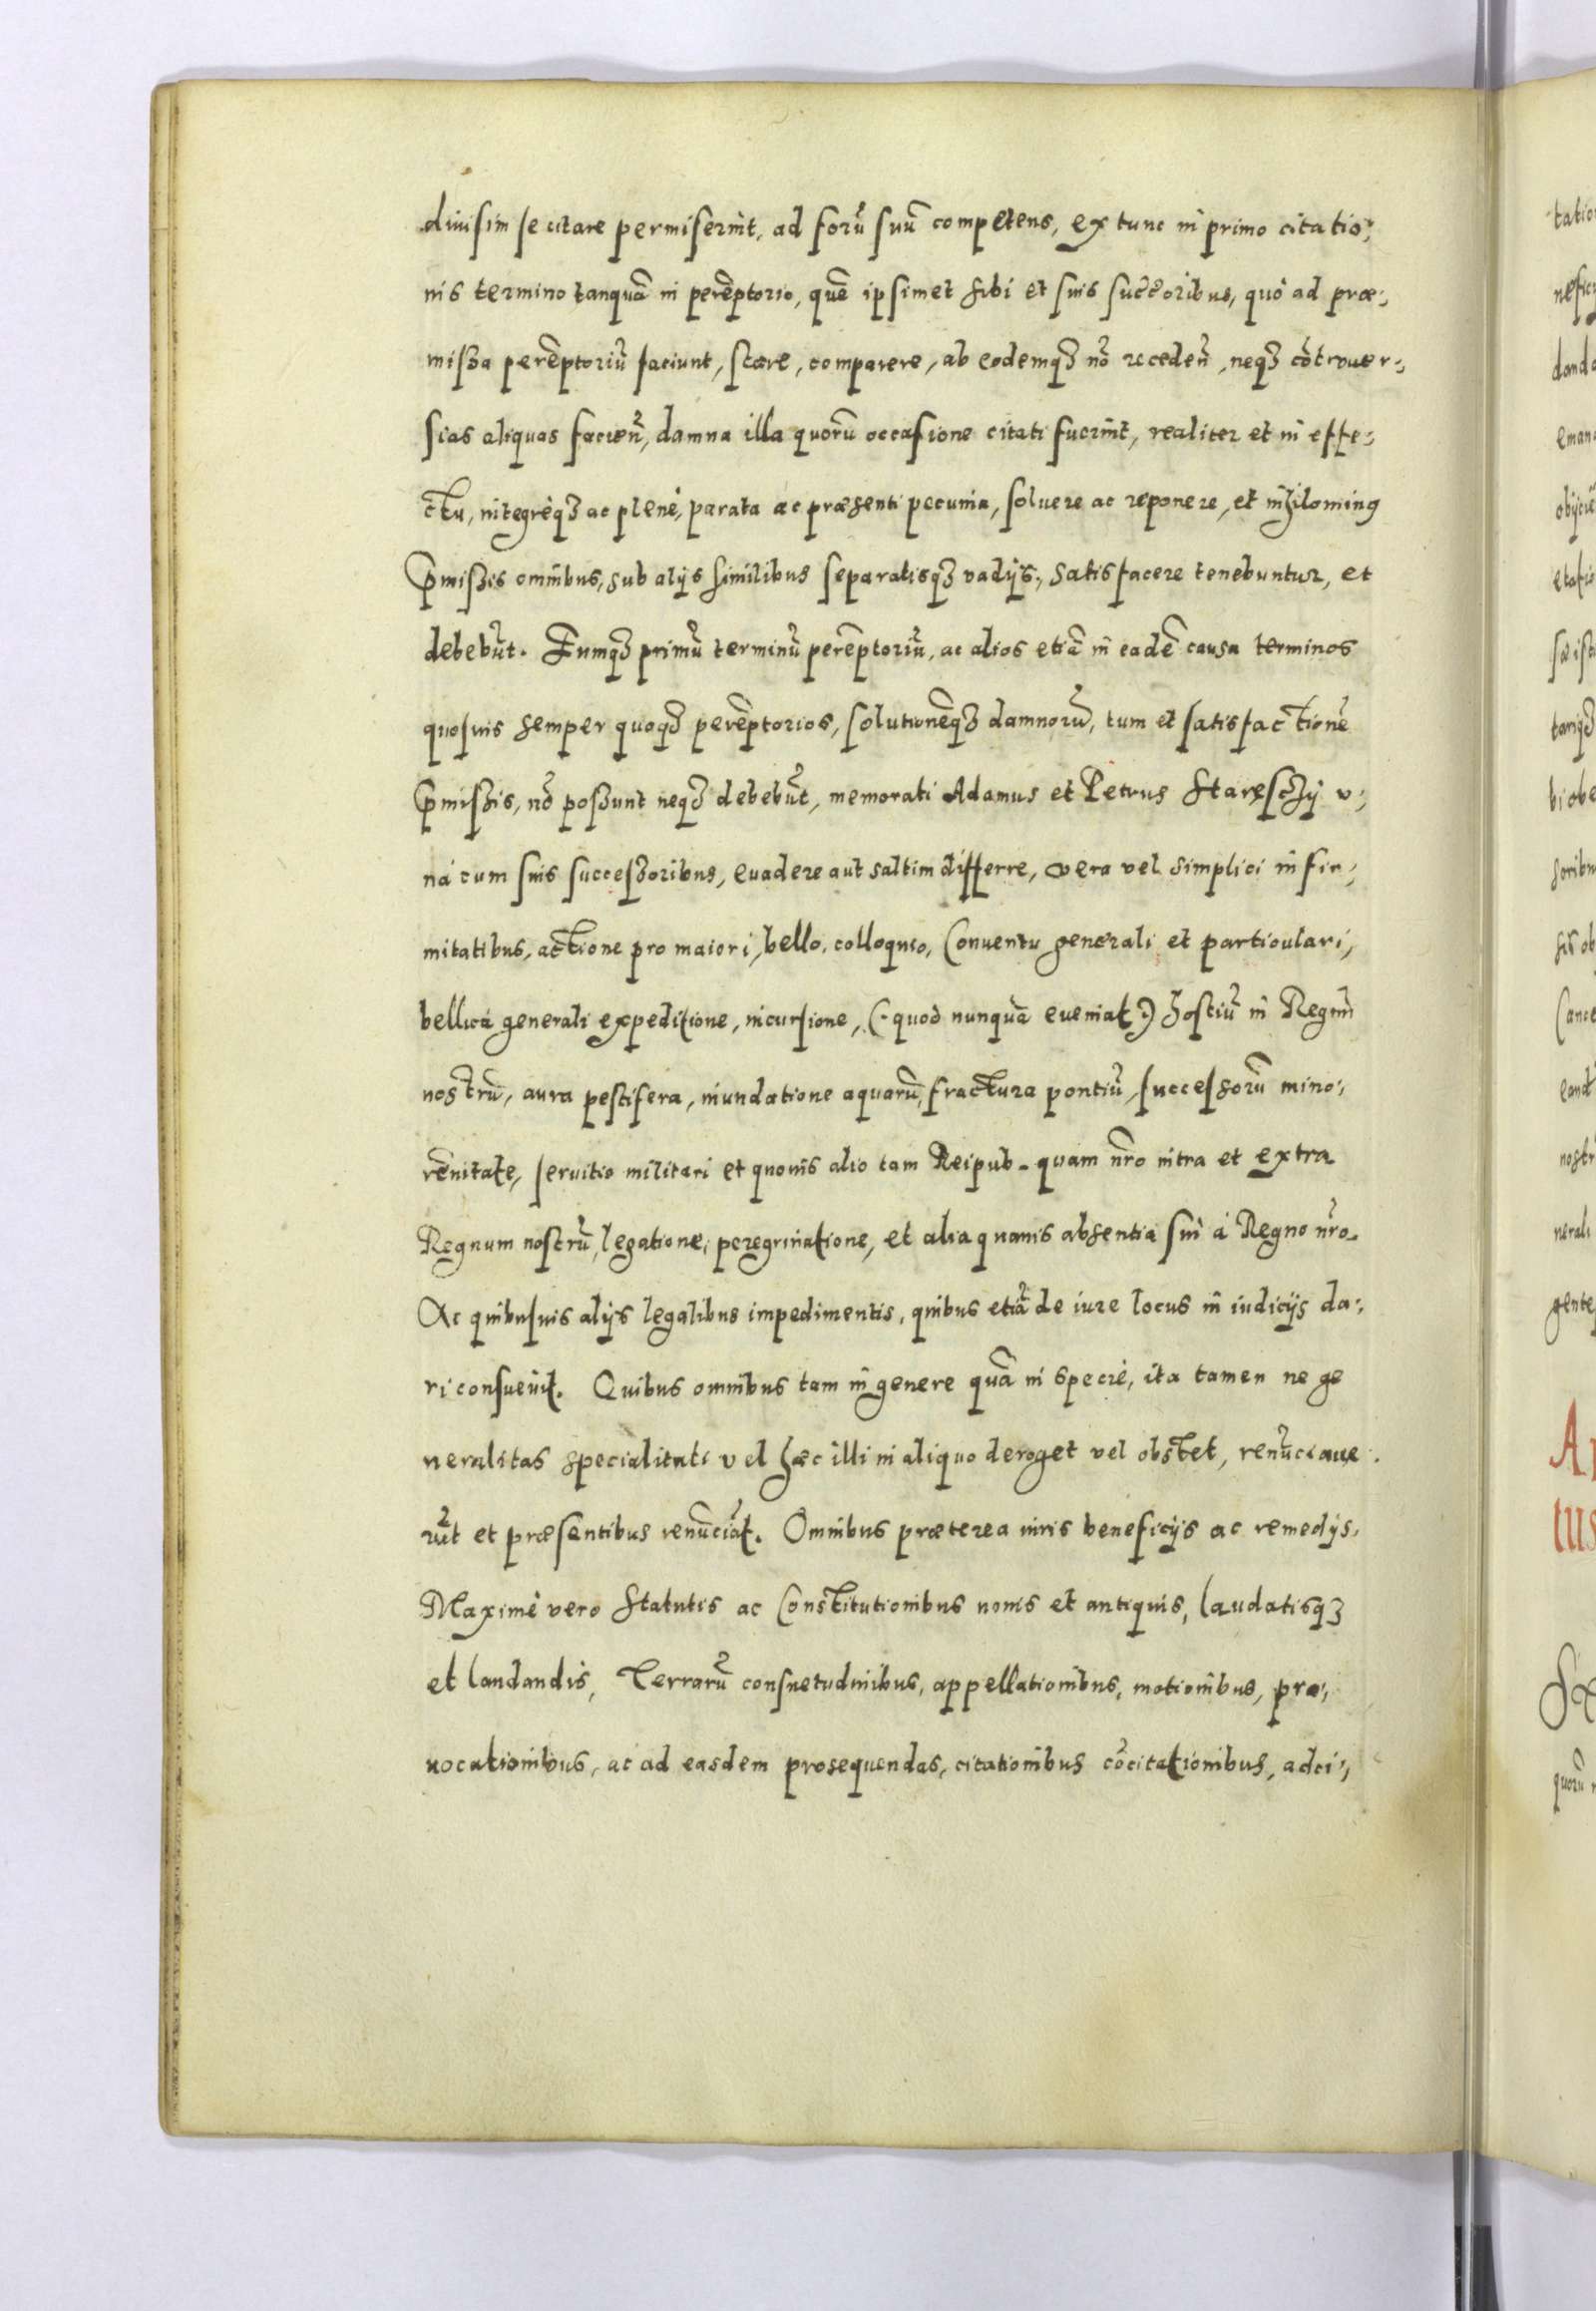 diuisim se citare permiserint, ad forū suū competens, ex tunc in primo citatio⸗
nis termino tanquā in perēptorio, quē ipsimet sibi et suis succeoribus, quò ad præ⸗
missa perēptoriū faciunt, stare, comparere, ab eodemqȝ nō receden̄, neqȝ cōtrouer⸗
sias aliquas facien̄, damna illa quorū occasione citati fuerint, realiter et in effe⸗
ctu, integrèqȝ ac plenè, parata ac præsenti pecunia, soluere ac reponere, et nihilominꝰ
p̄missis omnibus, sub alijs similibus separatisqȝ vadijs, satisfacere tenebuntur, et
debebūt. Eumqȝ primū terminū perēptoriū, ac alios etiā in eadē causa terminos
quosuis semper quoqȝ perēptorios, solutionēqȝ damnorū, tum et satisfactionē
p̄missis, nō possunt neqȝ debebūt, memorati Adamus et Petrus Staręschȳ v⸗
nà cum suis successoribus, euadere aut saltim differre, vera vel simplici infir⸗
mitatibus, actione pro maiori, bello, colloquio, Conuentu generali et particulari,
bellicà generali expeditione, incursione, (: quod nunquā eueniat :) hostiū in Regnū
nostrū, aura pestifera, inundatione aquarū, fractura pontiū, successorū mino⸗
rēnitate, seruitio militari et quouis alio tam Reipub. quam nr̄o intra et extra
Regnum nostrū, legatione, peregrinatione, et alia quauis absentia sui à Regno nr̄o.
Ac quibusuis alijs legalibus impedimentis, quibus etiā de iure locus in iudicijs da⸗
ri consueuit. Quibus omnibus tam in genere quā in specie, ita tamen ne ge
neralitas specialitati vel hæc illi in aliquo deroget vel obstet, renūciaue
rūt et præsentibus renūciāt. Omnibus præterea iuris beneficijs ac remedijs,
Maximè vero Statutis ac Constitutionibus nouis et antiquis, laudatisqȝ
et laudandis, Terrarū consuetudinibus, appellationibus, motionibus, pro⸗
uocationibus, ac ad easdem prosequendas, citationibus cōcitationibus, adci⸗